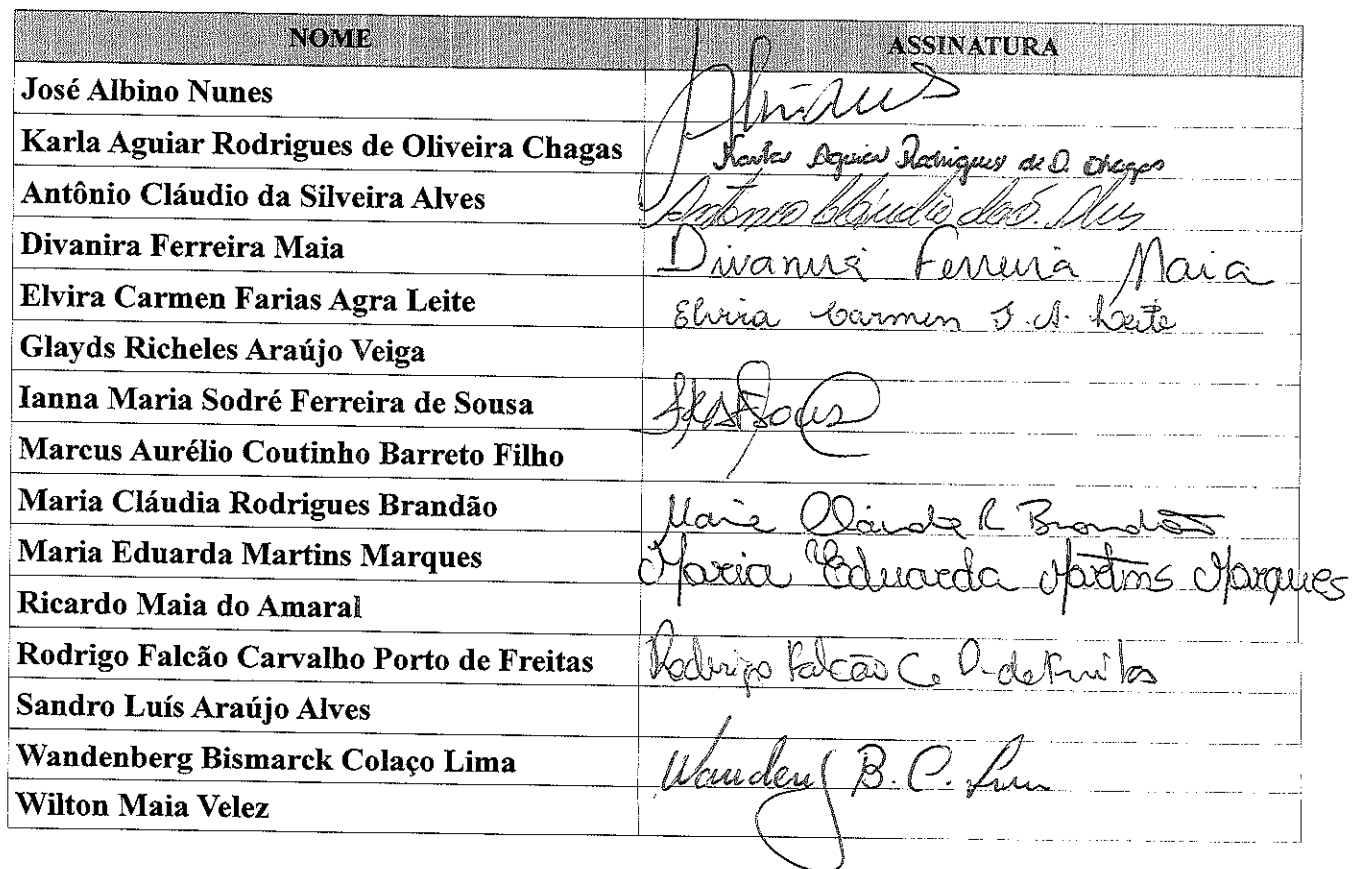 NOME ASSINATURA
José Albino Nunes
Karla Aguiar Rodrigues de Oliveira Chagas Karla Aguiar Rodrigues de O. Chagas
Antônio Cláudio da Silveira Alves Antônio Cláudio da S. Alves
Divanira Ferreira Maia Divanira Ferreira Maia
Elvira Carmen Farias Agra Leite Elvira Carmen F. A. Leite
Glayds Richeles Araújo Veiga
Ianna Maria Sodré Ferreira de Sousa
Marcus Aurélio Coutinho Barreto Filho
Maria Cláudia Rodrigues Brandão Maria Cláudia R Brandão
Maria Eduarda Martins Marques Maria Eduarda Martins Marques
Ricardo Maia do Amaral
Rodrigo Falcão Carvalho Porto de Freitas Rodrigo Falcão C. P. de Freitas
Sandro Luís Araújo Alves
Wandenberg Bismarck Colaço Lima B. C. Lima
Wilton Maia Velez